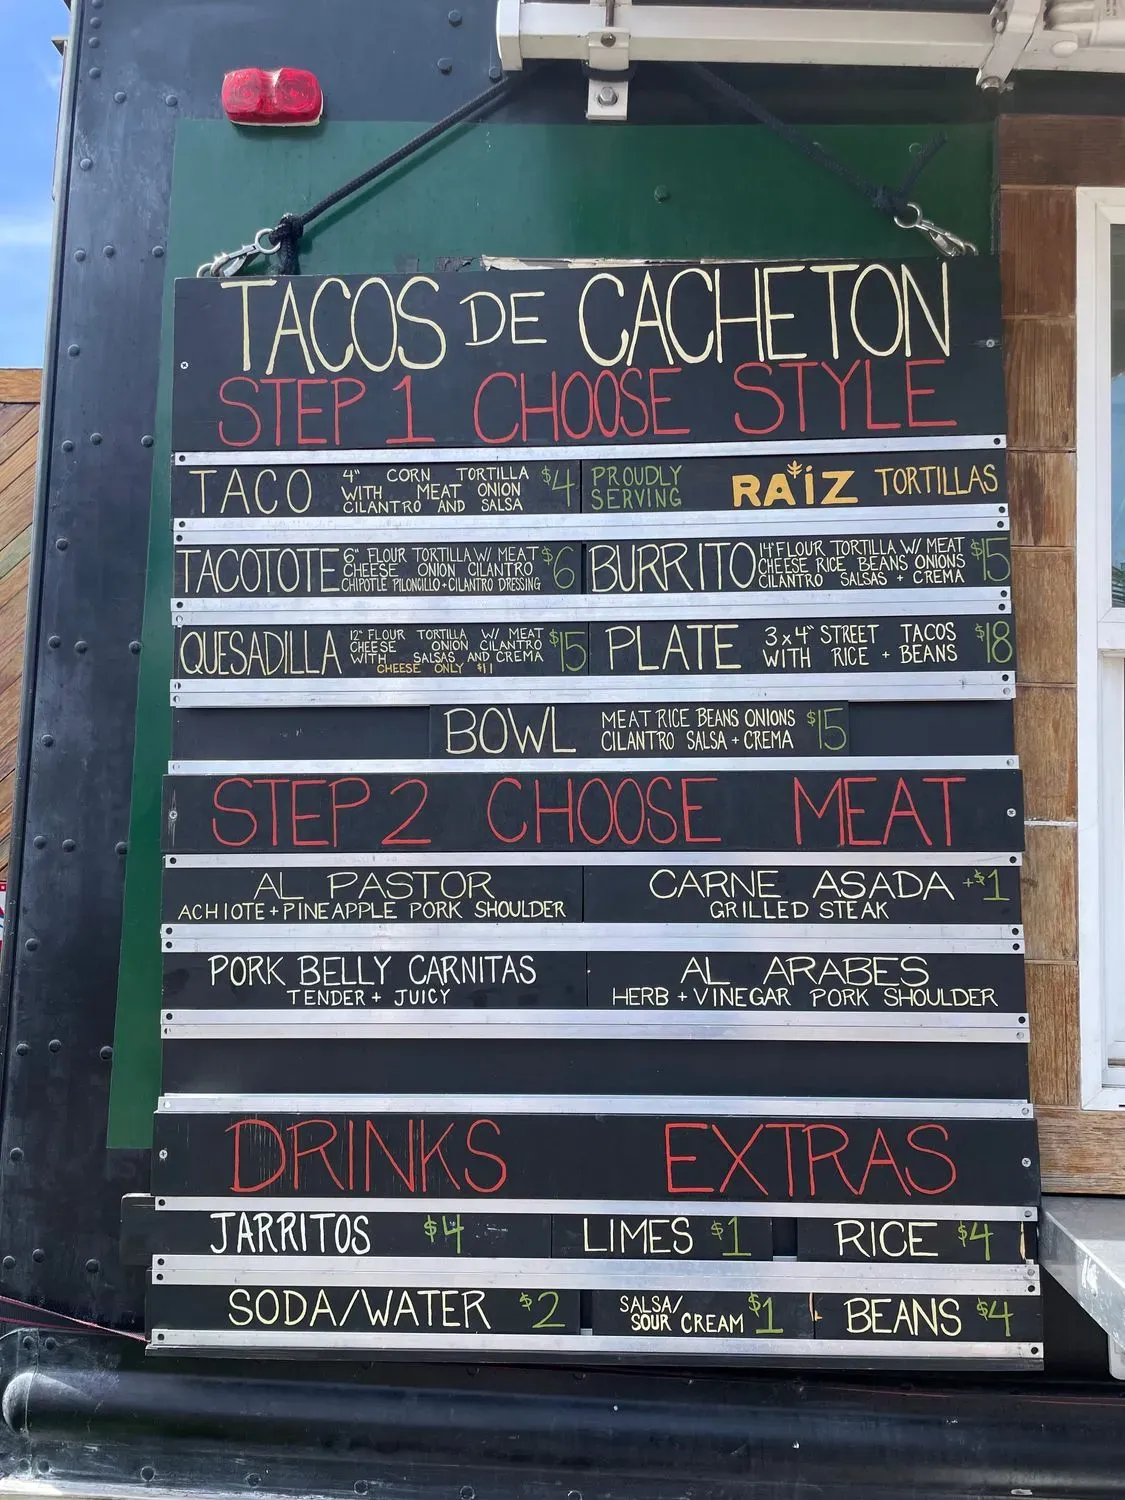 TACOS DE CACHETON
STEP 1 CHOOSE STYLE
TACO
4" CORN TORTILLA
WITH MEAT ONION
CILANTRO AND SALSA
$4
PROUDLY
SERVING
RAÍZ TORTILLAS
TACOTOTE
6" FLOUR TORTILLA W/ MEAT
CHEESE ONION CILANTRO
CHIPOTLE PILONCILLO + CILANTRO DRESSING
$6
BURRITO
14" FLOUR TORTILLA W/ MEAT
CHEESE RICE BEANS ONIONS
CILANTRO SALSAS + CREMA
$15
QUESADILLA
12" FLOUR TORTILLA W/ MEAT
CHEESE ONION CILANTRO
WITH SALSAS AND CREMA
CHEESE ONLY $11
$15
PLATE
3 x 4" STREET TACOS
WITH RICE + BEANS
$18
BOWL
MEAT RICE BEANS ONIONS
CILANTRO SALSA + CREMA
$15
STEP 2 CHOOSE MEAT
AL PASTOR
ACHIOTE + PINEAPPLE PORK SHOULDER
CARNE ASADA +$1
GRILLED STEAK
PORK BELLY CARNITAS
TENDER + JUICY
AL ARABES
HERB + VINEGAR PORK SHOULDER
DRINKS EXTRAS
JARRITOS $4
LIMES $1
RICE $4
SODA/WATER $2
SALSA/
SOUR CREAM $1
BEANS $4